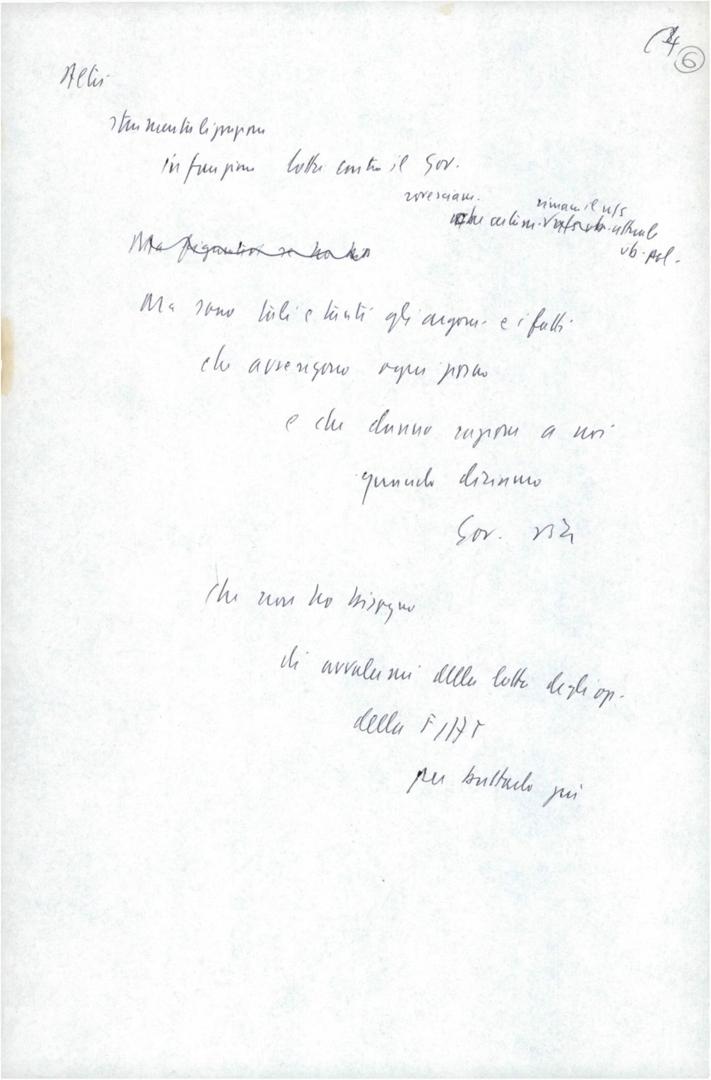 6
Altri
strumentalizzazione
in funzione lotta contro il Gov.
rovesciam.
rimane il ns
ob. pol.
Ma
Ma sono tali e tanti gli argom. e i fatti
che avvengono ogni giorno
e che danno ragione a noi
quando diciamo
Gov. via
che non ho bisogno
di avvalermi della lotta degli op.
della FIAT
per buttarlo giù